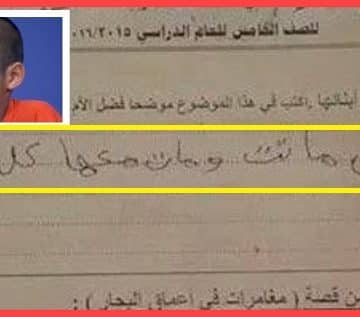 للصف الخامس للعام الدراسي ٢٠١٦/٢٠١٥
أبنائها ,اكتب في هذا الموضوع موضحا فضل الأم
ماتت ومات معها كل
من قصة ( مغامرات في اعماق البحار ) :